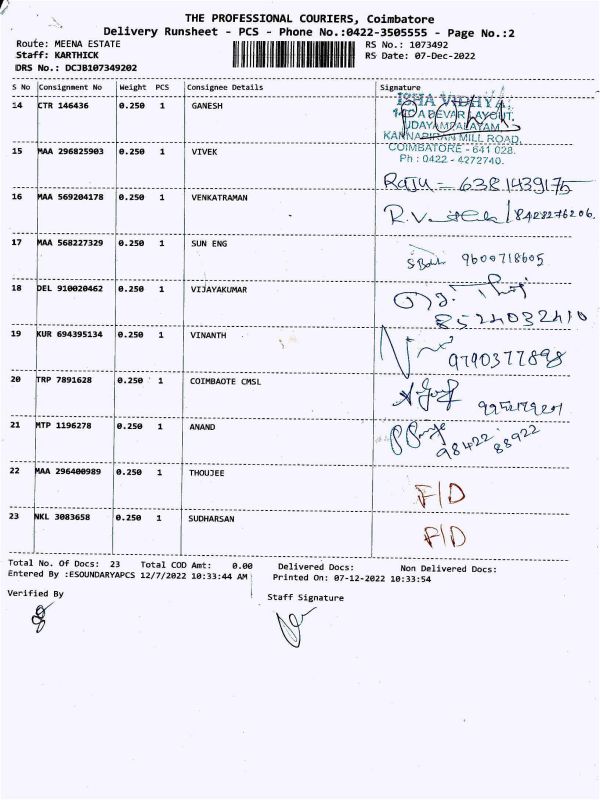 THE PROFESSIONAL COURIERS, Coimbatore
Delivery Runsheet - PCS - Phone No.:0422-3505555 - Page No.:2
Route: MEENA ESTATE RS No.: 1073492
Staff: KARTHICK RS Date: 07-Dec-2022
DRS No.: DCJB107349202
S No Consignment No Weight PCS Consignee Details Signature
14 CTR 146436 0.250 1 GANESH
ISHA VIDHYA,
LAYOUT,
UDAYAMPALAYAM,
KANNAPIRAN MILL ROAD,
COIMBATORE - 641 028.
Ph : 0422 - 4272740.
15 MAA 296825903 0.250 1 VIVEK
Raju - 6381439175
16 MAA 569204178 0.250 1 VENKATRAMAN
R.V 8428276206.
17 MAA 568227329 0.250 1 SUN ENG
9600718605
18 DEL 910020462 0.250 1 VIJAYAKUMAR
8524032410
19 KUR 694395134 0.250 1 VINANTH
9790377898
20 TRP 7891628 0.250 1 COIMBAOTE CMSL
21 MTP 1196278 0.250 1 ANAND
98422 88922
22 MAA 296400989 0.250 1 THOUJEE
F/D
23 NKL 3083658 0.250 1 SUDHARSAN
F/D
Total No. Of Docs: 23 Total COD Amt: 0.00 Delivered Docs: Non Delivered Docs:
Entered By :ESOUNDARYAPCS 12/7/2022 10:33:44 AM Printed On: 07-12-2022 10:33:54
Verified By Staff Signature